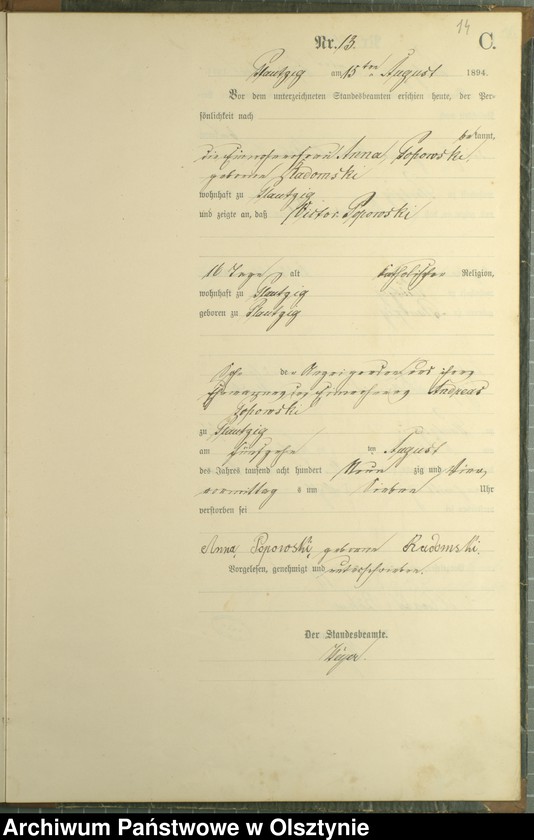 14
Nr. 13. C.
Plautzig am 15ten August 1894.
Vor dem unterzeichneten Standesbeamten erschien heute, der Per-
sönlichkeit nach
bekannt,
die Einwohnerfrau Anna Popowski
geborene Radomski
wohnhaft zu Plautzig
und zeigte an, daß Victor Popowski
16 Tage alt katholischer Religion,
wohnhaft zu Plautzig
geboren zu Plautzig
Sohn der Anzeigenden und ihres
Ehemannes Einwohners Andreas
Popowski
zu Plautzig
am fünfzehn ten August
des Jahres tausend acht hundert Neun zig und Vier
vormittag s um Sieben Uhr
verstorben sei
Anna Popowski geborene Radomski.
Vorgelesen, genehmigt und unterschrieben.
Der Standesbeamte.
Archiwum Państwowe w Olsztynie